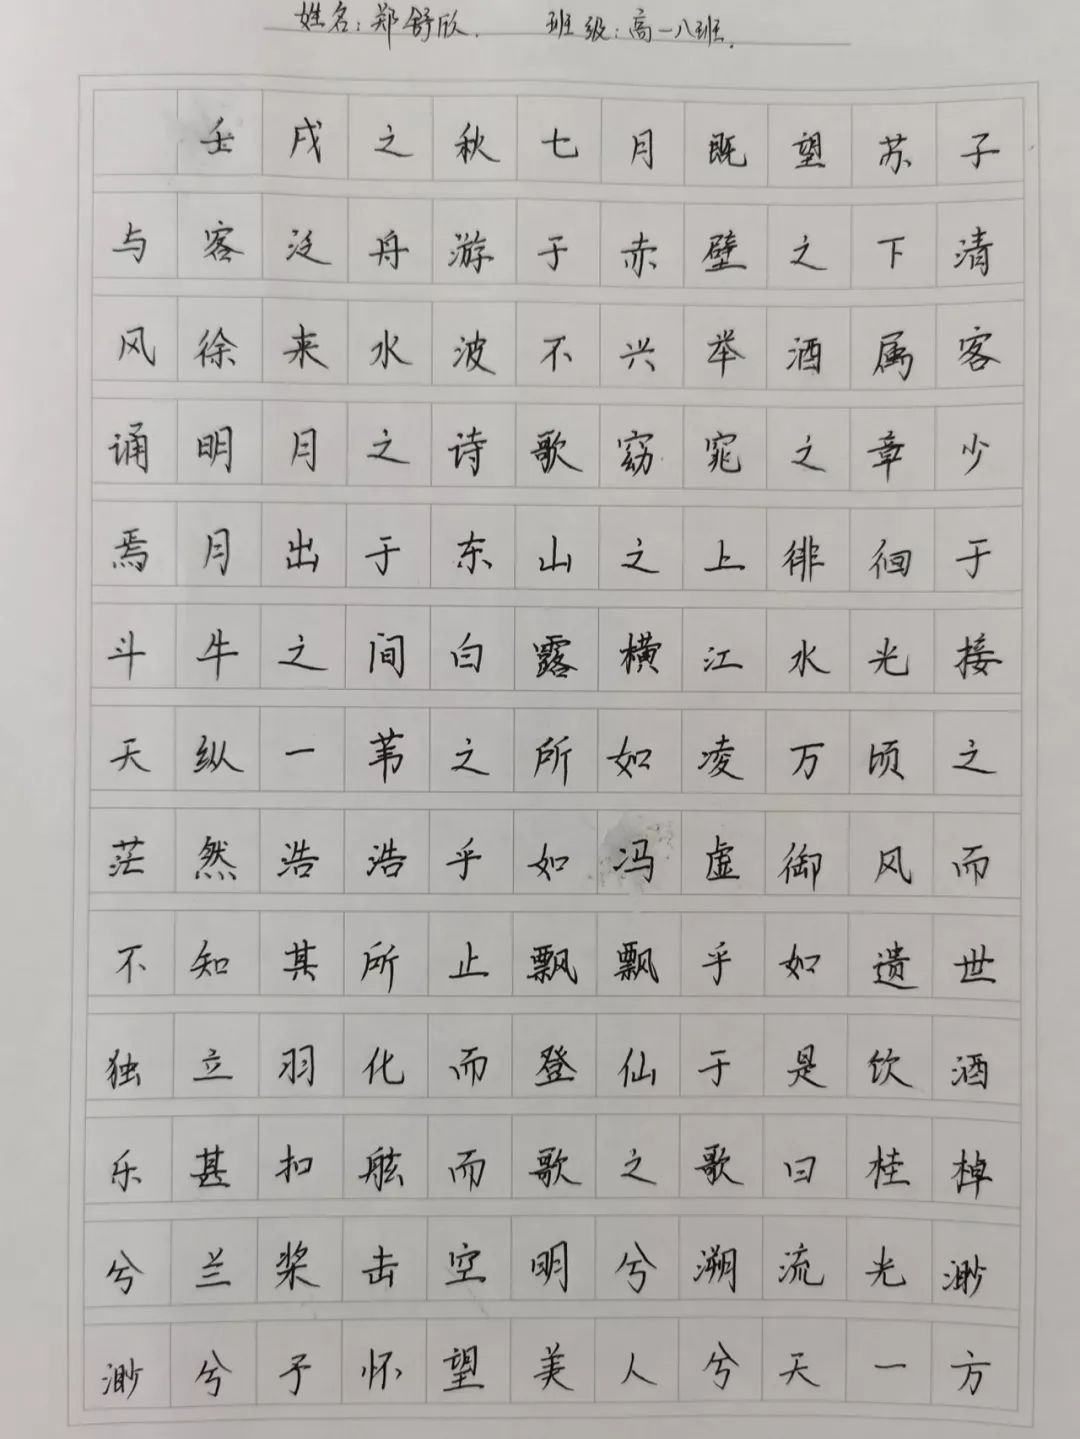 姓名：郑舒欣. 班级：高一八班.
壬戌之秋七月既望苏子
与客泛舟游于赤壁之下清
风徐来水波不兴举酒属客
诵明月之诗歌窈窕之章少
焉月出于东山之上徘徊于
斗牛之间白露横江水光接
天纵一苇之所如凌万顷之
茫然浩浩乎如冯虚御风而
不知其所止飘飘乎如遗世
独立羽化而登仙于是饮酒
乐甚扣舷而歌之歌曰桂棹
兮兰桨击空明兮溯流光渺
渺兮予怀望美人兮天一方